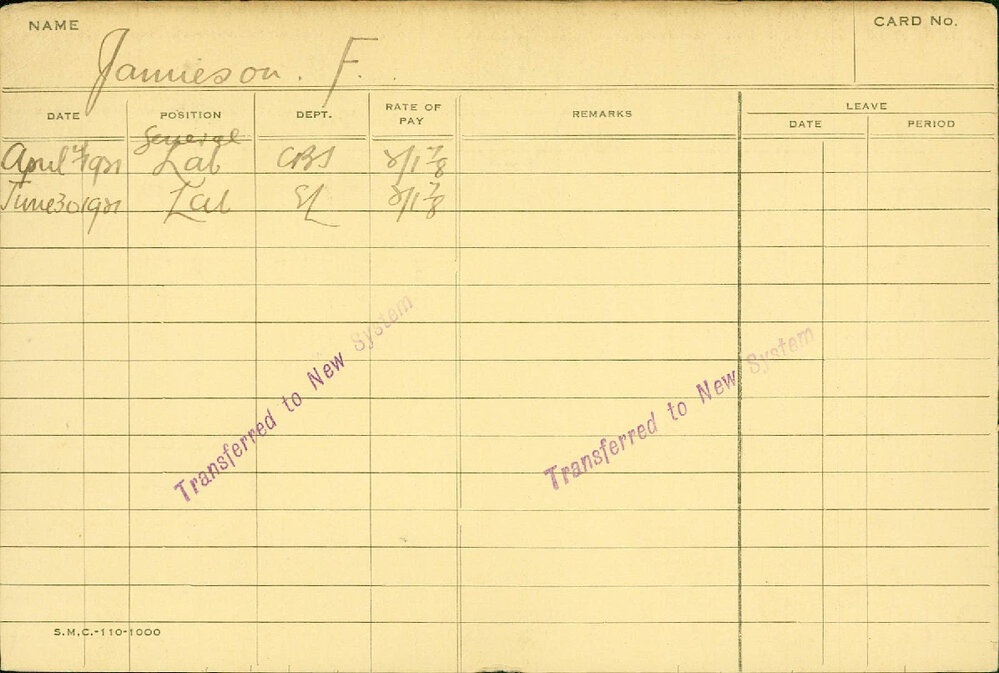 NAME Jamieson. F. CARD No.
DATE POSITION DEPT. RATE OF PAY REMARKS LEAVE
DATE PERIOD
General
April 1921 Lab CBS 2/1 7/8
June 30 1921 Lab EL 2/1 7/8
Transferred to New System
Transferred to New System
S.M.C.-110-1000